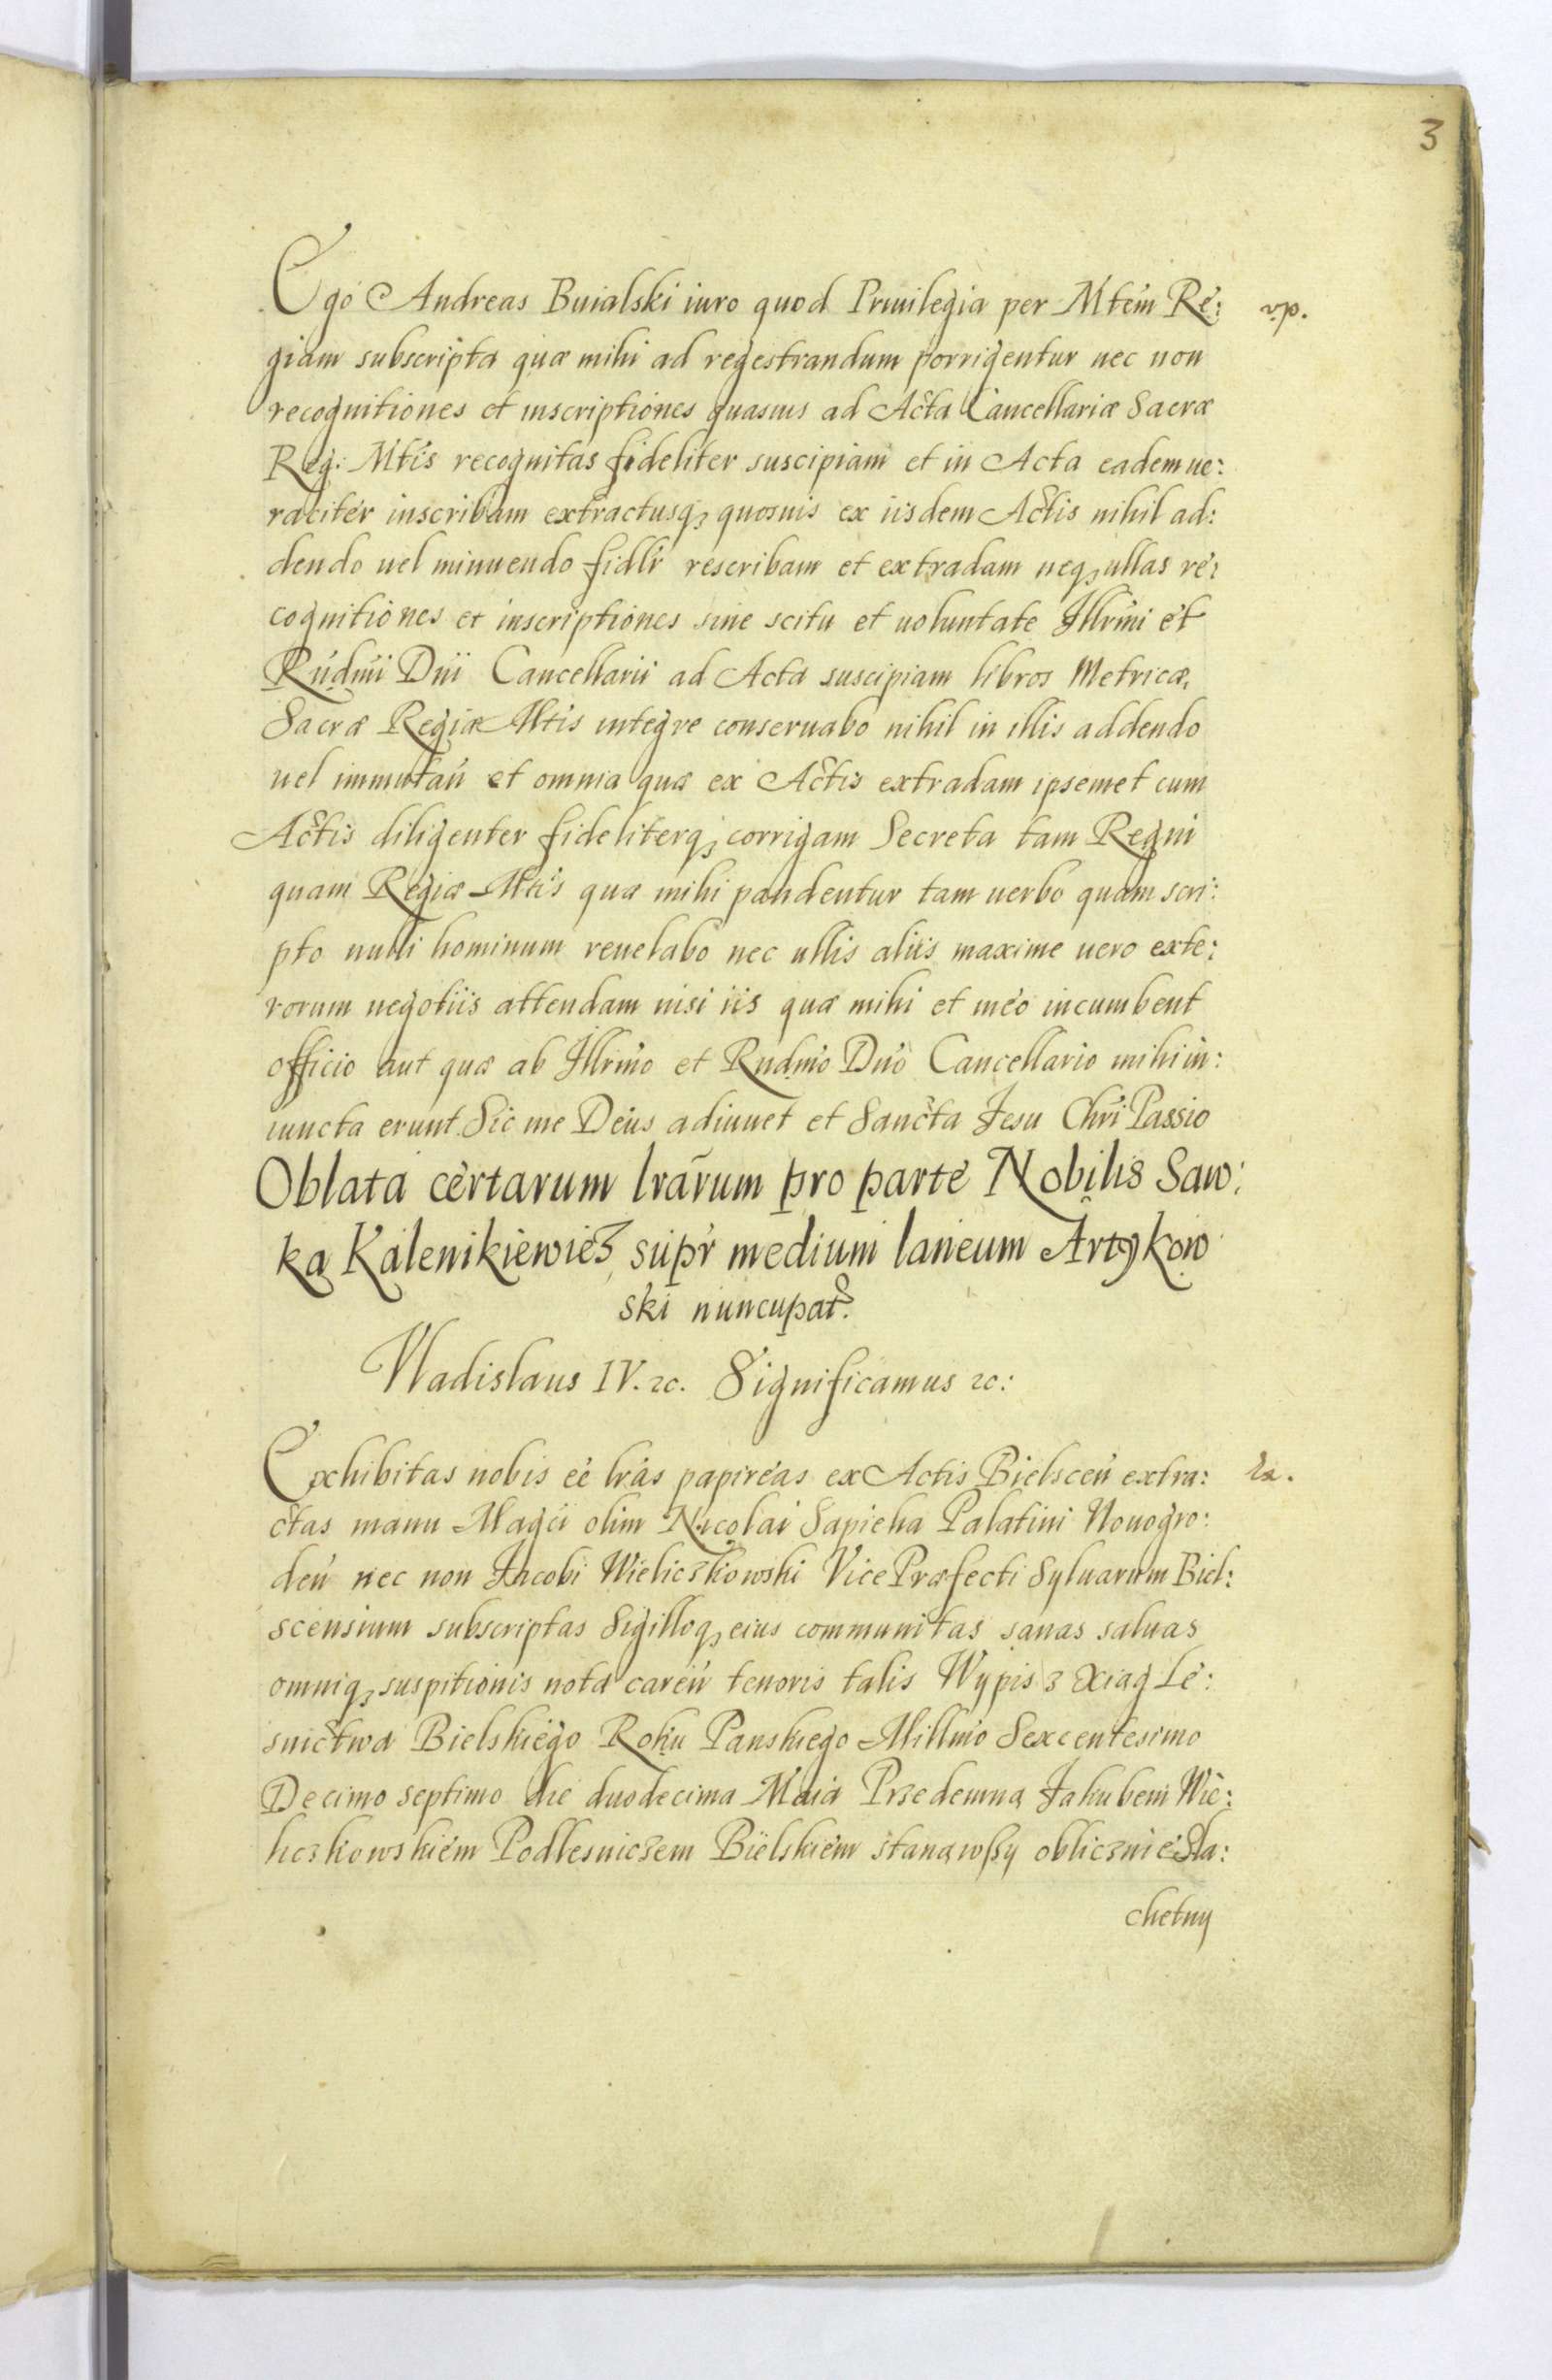 3
Ego Andreas Buialski iuro quod Priuilegia per Mtem Re: vp.
giam subscripta quæ mihi ad regestrandum porrigentur nec non
recognitiones et inscriptiones quasuis ad Acta Cancellariæ Sacræ
Reg: Mtis recognitas fideliter suscipiam et in Acta eadem ue:
raciter inscribam extractusq3 quosuis ex iisdem Actis nihil ad:
dendo uel minuendo fidlr rescribam et extradam neq3 ullas re:
cognitiones et inscriptiones sine scitu et uoluntate Illrmi et
Rndmi Dni Cancellarii ad Acta suscipiam libros Metricæ
Sacræ Regiæ Mtis integre conseruabo nihil in illis addendo
uel immutań et omnia quæ ex Actis extradam ipsemet cum
Actis diligenter fideliterq3 corrigam Secreta tam Regni
quam Regiæ Mtis quæ mihi pandentur tam uerbo quam scri:
pto nulli hominum reuelabo nec ullis aliis maxime uero exte:
rorum negotiis attendam nisi iis quæ mihi et meo incumbent
officio aut quæ ab Illrmo et Rndmo Dno Cancellario mihi in:
iuncta erunt Sic me Deus adiuuet et Sancta Jesu Chri Passio
Oblata certarum lrarum pro parte Nobilis Saw:
ka Kalenikiewicz supr medium laneum Artykow
ski nuncupat.
Vladislaus IV. 2c. Significamus 2c:
Exhibitas nobis eē lrās papireas ex Actis Bielsceń extra:
ctas manu Magci olim Nicolai Sapieha Palatini Nouogro:
deń nec non Jacobi Wieliczkowski Vice Præfecti Syluarum Biel:
scensium subscriptas Sigilloq3 eius communitas sanas saluas
omniq3 suspitionis nota careń tenoris talis Wypis z Xiag Le:
snictwa Bielskiego Roku Panskiego Millmo Sexcentesimo
Decimo septimo die duodecima Maia Przedemną Jakubem Wie:
liczkowskiem Podlesniczem Bielskiem stanąwßy oblicznie Sla:
chetny